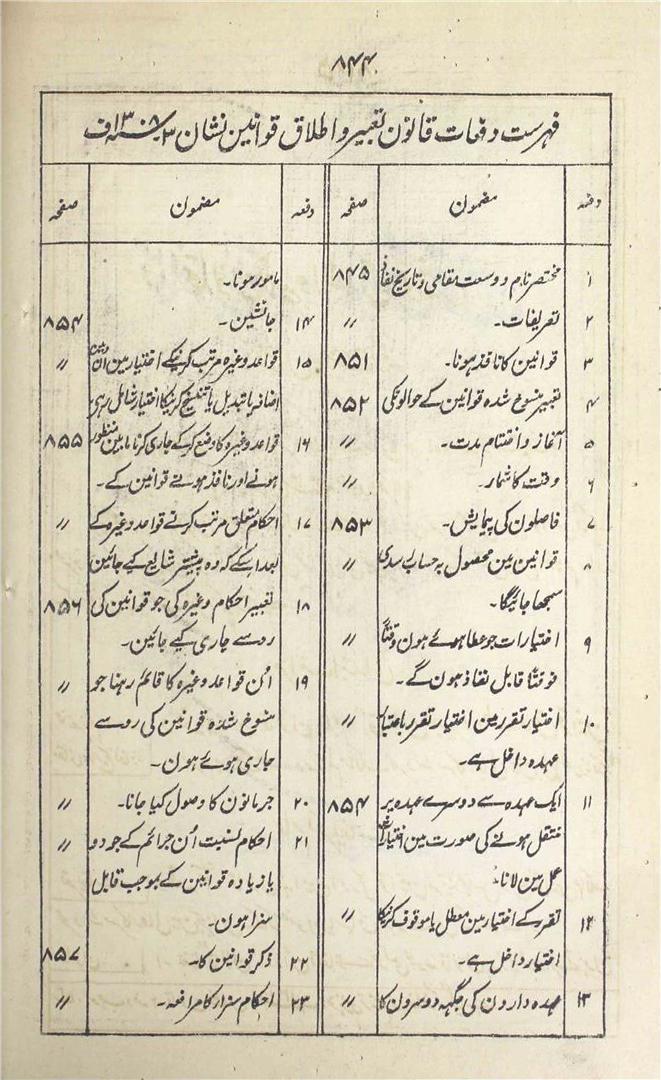 ۸۴۴
فہرست دفعات قانون تعبیر و اطلاق قوانین نشان ۳ سنہ ۱۳۰۸ف
دفعہ مضمون صفحہ
۱ مختصر نام و وسعت مقامی و تاریخ نفاذ ۸۴۵
۲ تعریفات۔ 〃
۳ قوانین کا نافذ ہونا۔ ۸۵۱
۴ تعبیر منسوخ شدہ قوانین کے حوالونکی ۸۵۲
۵ آغاز و اختتام مدت۔ 〃
۶ وقت کا شمار۔ 〃
۷ فاصلون کی پیمایش۔ ۸۵۳
۸ قوانین مین محصول بہ حساب رسدی 〃
سمجھا جائیگا۔
۹ اختیارات جو عطا ہوئے ہون وقتاً 〃
فوقتاً قابل نفاذ ہون گے۔
۱۰ اختیار تقرر مین اختیار تقرر باعتبار 〃
عہدہ داخل ہے۔
۱۱ ایک عہدہ سے دوسرے عہدہ پر ۸۵۴
منتقل ہونے کی صورت مین اختیارات
عمل مین لانا۔
۱۲ تقرر کے اختیار مین معطل یا موقوف کرنیکا 〃
اختیار داخل ہے۔
۱۳ عہدہ دارون کی جگہہ دوسرون کا 〃
دفعہ مضمون صفحہ
مامور ہونا۔
۱۴ جانشین۔ ۸۵۴
۱۵ قواعد وغیرہ مرتب کرنیکے اختیار مین ان مین 〃
اضافہ یا تبدیل یا تنسیخ کرنیکا اختیار شامل رہی
۱۶ قواعد وغیرہ کا وضع کرکے جاری کرنا مابین منظور ۸۵۵
ہونے اور نافذ ہونے قوانین کے۔
۱۷ احکام متعلق مرتب کرنے قواعد وغیرہ کے 〃
بعد اسکے کہ وہ پیشتر شایع کیے جائین
۱۸ تعبیر احکام وغیرہ کی جو قوانین کی ۸۵۶
رو سے جاری کیے جائین۔
۱۹ اُن قواعد وغیرہ کا قائم رہنا جو 〃
منسوخ شدہ قوانین کی رو سے
جاری ہوئے ہون۔
۲۰ جرمانون کا وصول کیا جانا۔ 〃
۲۱ احکام نسبت اُن جرائم کے جو دو 〃
یا زیادہ قوانین کے بموجب قابل
سزا ہون۔
۲۲ ذکر قوانین کا۔ ۸۵۷
۲۳ احکام سزا کا مرافعہ۔ 〃